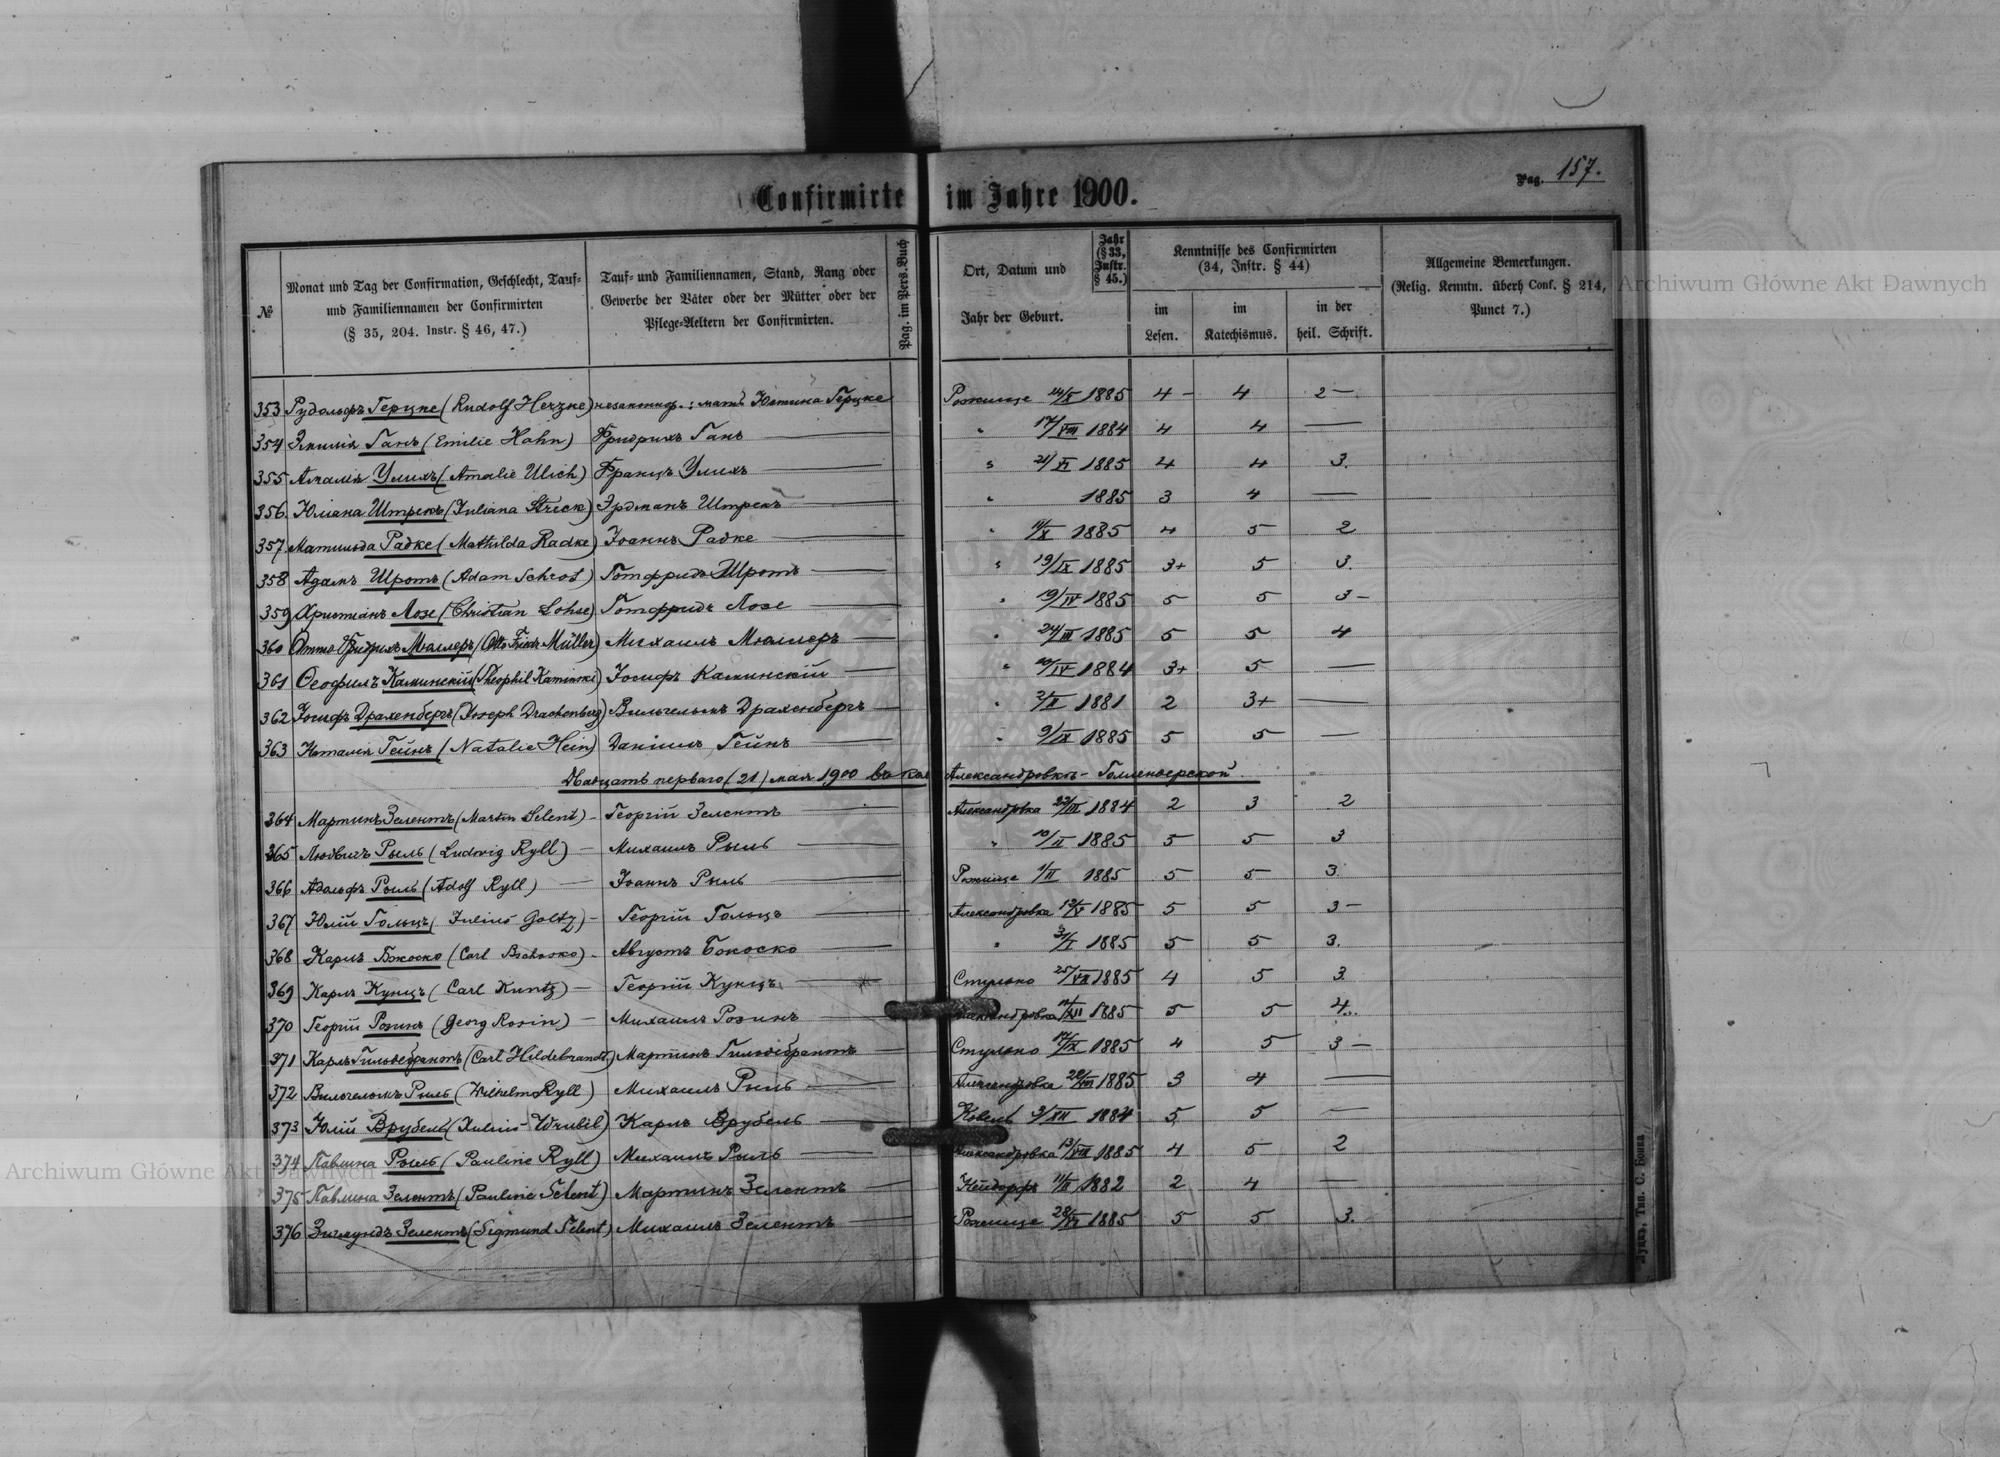 Confirmirte im Jahre 1900.
Pag. 157.
№
Monat und Tag der Confirmation, Geschlecht, Tauf- und Familiennamen der Confirmirten (§ 35, 204. Instr. § 46, 47.)
Tauf- und Familiennamen, Stand, Rang oder Gewerbe der Väter oder der Mütter oder der Pflege-Aeltern der Confirmirten.
Pag. im Pers.Buch
Ort, Datum und Jahr der Geburt.
Jahr (§ 33, Instr. § 45.)
Kenntnisse des Confirmirten (34, Instr. § 44)
im Lesen.
im Katechismus.
in der heil. Schrift.
Allgemeine Bemerkungen. (Relig. Kenntn. überh Conf. § 214, Punct 7.)
353 Рудольфъ Герцке (Rudolf Herzke) : мать Юстина Герцке Рожище 14/X 1885 4- 4 2-
354 Эмилія Ганъ (Emilie Hahn) Фридрихъ Ганъ " 17/VIII 1884 4 4 —
355 Амалія Улихъ (Amalie Ulich) Францъ Улихъ " 21/XI 1885 4 4 3.
356. Юліана Штрекъ (Juliana Streck) Эрдманъ Штрекъ " 1885 3 4 —
357. Матильда Радке (Mathilda Radke) Іоаннъ Радке " /X 1885 4 5 2
358 Адамъ Шротъ (Adam Schrot) Готфридъ Шротъ " 19/IX 1885 3+ 5 3.
359 Христіанъ Лозе (Christian Lohse) Готфридъ Лозе " 19/IV 1885 5 5 3-
360 Отто Фридрихъ Мюллеръ (Otto Friedr Müller) Михаилъ Мюллеръ " 24/III 1885 5 5 4
361 Ѳеофилъ Каминскій (Theophil Kaminski) Іосифъ Каминскій " /IV 1884 3+ 5 —
362 Іосифъ Драхенбергъ (Joseph Drachenberg) Вильгельмъ Драхенбергъ " 2/X 1881 2 3+ —
363 Наталія Гейнъ (Natalie Hein) Даніилъ Гейнъ " 9/IX 1885 5 5 —
Двадцать перваго (21) мая 1900 въ кол Александровкѣ-Голлендерской
364 Мартинъ Зелентъ (Martin Selent) - Георгій Зелентъ Александровка 23/III 1884 2 3 2
365 Людвигъ Рыль (Ludwig Ryll) - Михаилъ Рыль " 10/II 1885 5 5 3
366 Адольфъ Рыль (Adolf Ryll) — Іоаннъ Рыль Рожище 1/II 1885 5 5 3.
367 Юлій Гольцъ (Julius Goltz) - Георгій Гольцъ Александровка 19/V 1885 5 5 3-
368 Карлъ Бжоско (Carl Bschosko) - Августъ Бжоско " 3/I 1885 5 5 3.
369 Карлъ Кунцъ (Carl Kuntz) - Георгій Кунцъ Стулько 25/VII 1885 4 5 3.
370 Георгій Розинъ (Georg Rosin) - Михаилъ Розинъ Александровка /XII 1885 5 5 4..
371 Карлъ Гильдебрантъ (Carl Hildebrandt) Мартинъ Гильдебрантъ Стулько 17/IX 1885 4 5 3-
372 Вильгельмъ Рыль (Wilhelm Ryll) Михаилъ Рыль Александровка 28/VIII 1885 3 4 —
373 Юлій Врубель (Julius Wrubel) Карлъ Врубель 3/XII 1884 5 5 —
374 Павлина Рыль (Pauline Ryll) Михаилъ Рыль Александровка 13/VIII 1885 4 5 2
375 Павлина Зелентъ (Pauline Selent) Мартинъ Зелентъ Нейдорфъ 11/II 1882 2 4 —
376 Зигмундъ Зелентъ (Sigmund Selent) Михаилъ Зелентъ Рожище 28/XI 1885 5 5 3.
Луцкъ, Тип. С. Бонка
Archiwum Główne Akt Dawnych
Archiwum Główne Akt Dawnych